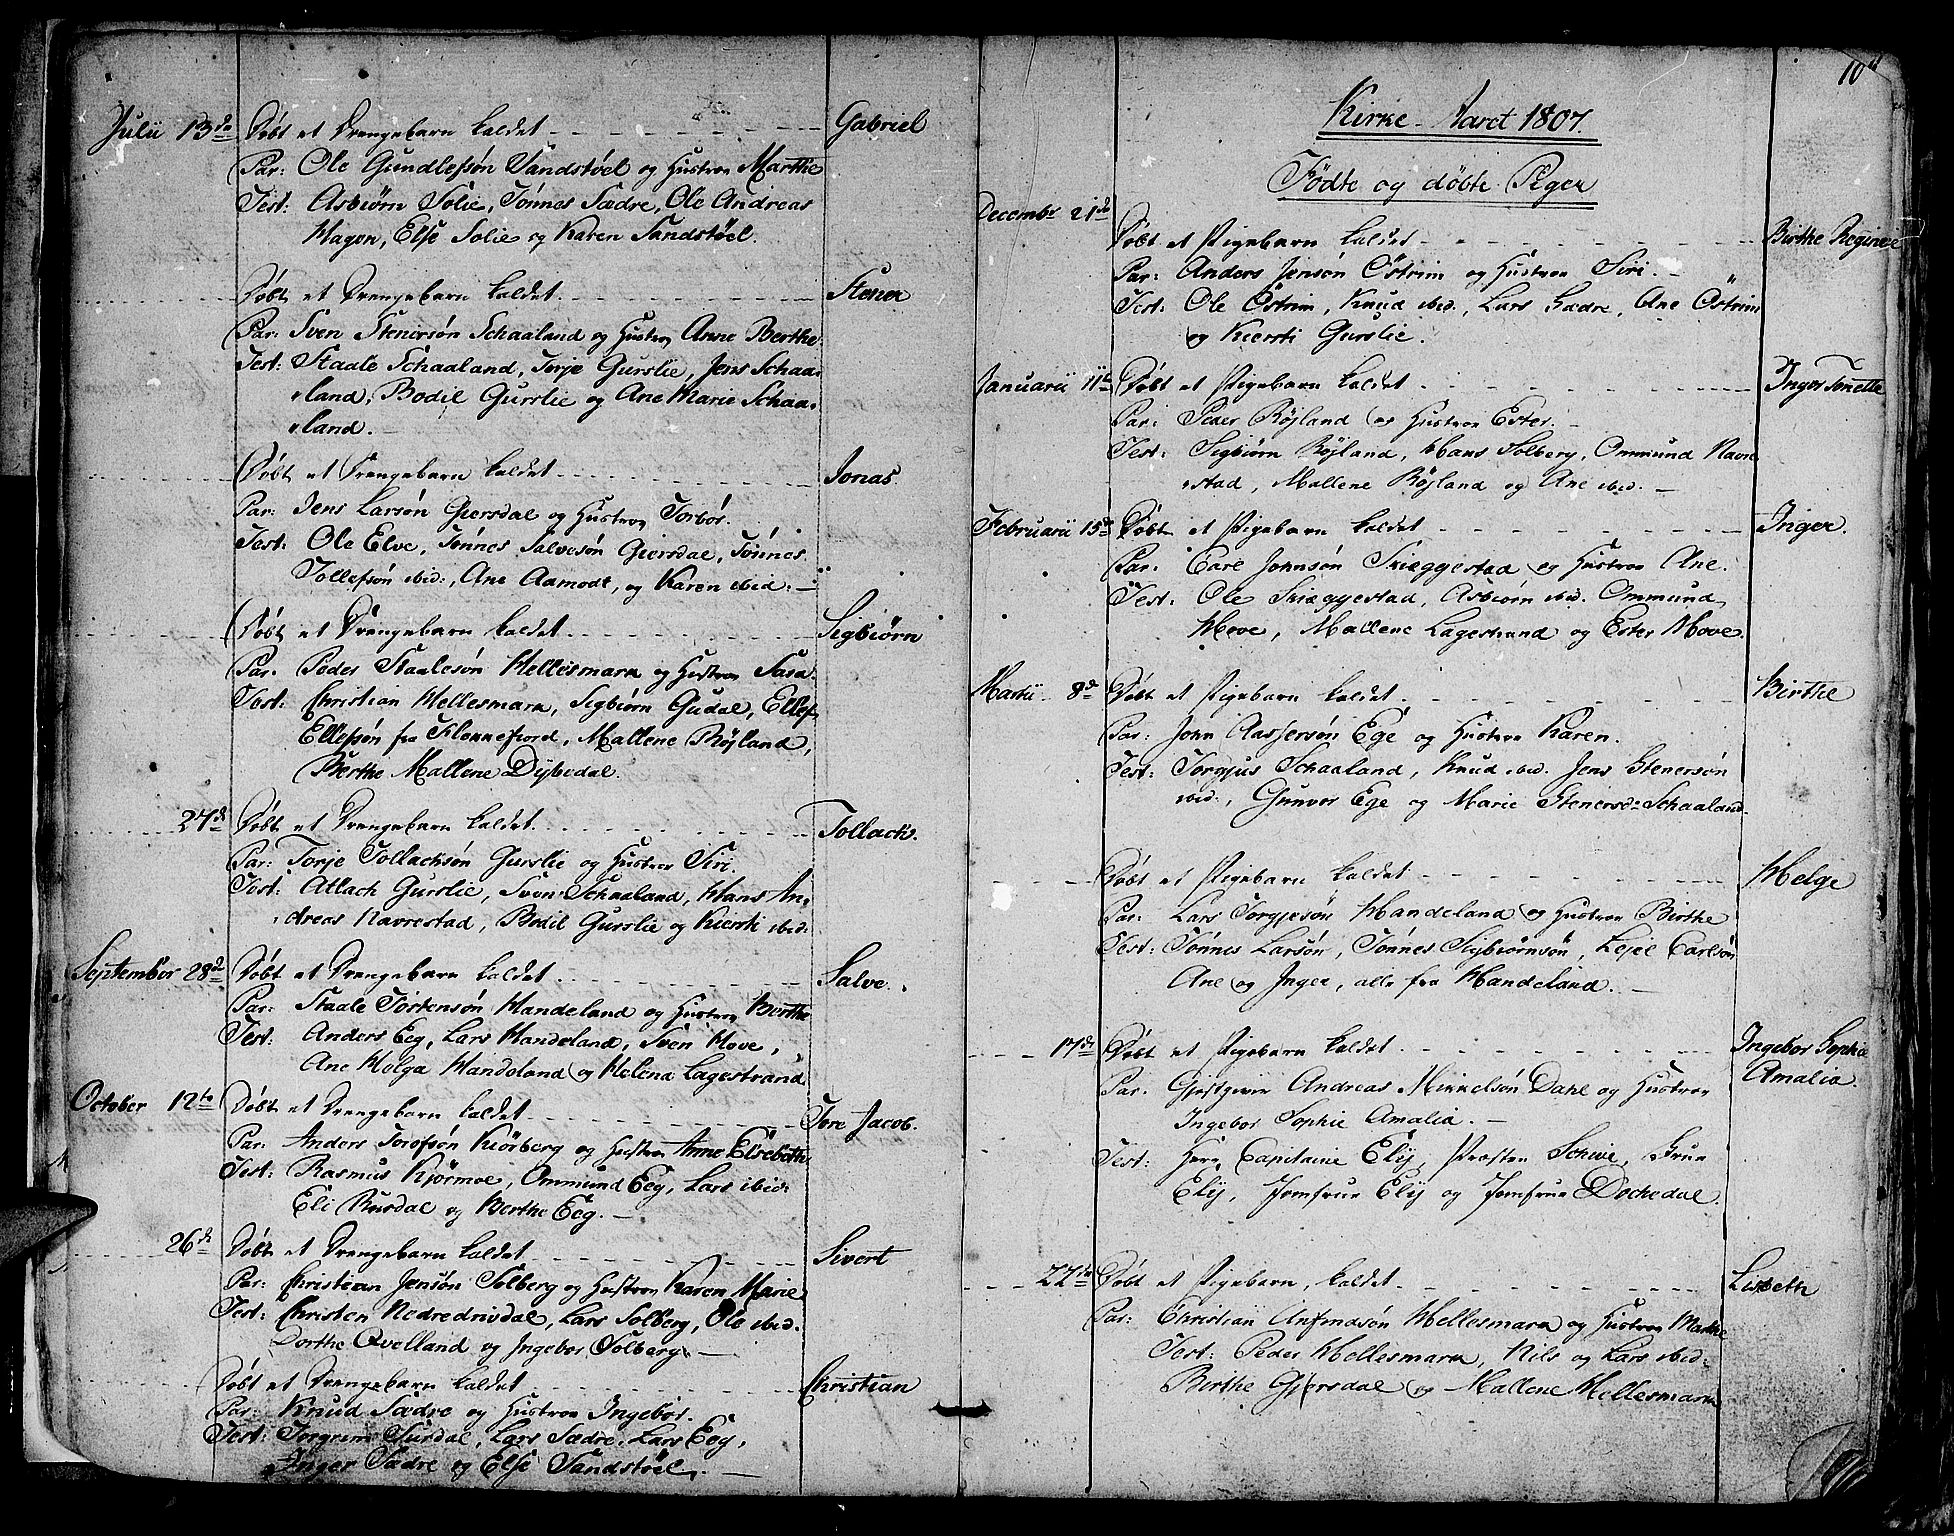 Julii 13de Døbt et Drengebarn kaldet Gabriel
Par: Ole Gundlefsøn Sandstøel og Hustroe Marthe
Test: Asbiørn Solie, Tønnes Sædre, Ole Andreas
Hagen, Else Solie og Karen Sandstøel.
Døbt et Drengebarn kaldet Stener
Par: Sven Stenersøn Schaaland og Hustroe Anne Berthe
Test: Staale Schaaland, Torje Gurslie, Jens Schaa-
land, Bodil Gurslie og Ane Marie Schaa-
land.
Døbt et Drengebarn kaldet Jonas
Par: Jens Larsøn Giersdal og Hustroe Torbør.
Test: Ole Elve, Tønnes Salvesøn Giersdal, Tønnes
Tollefsøn ibid:, Ane Aamodt, og Karen ibid:
Døbt et Drengebarn kaldet Sigbiørn
Par. Peder Staalesøn Hellesmark og Hustroe Sara.
Test: Christian Hellesmark, Sigbiørn Gudal, Ellef
Ellefsøn fra Flekkefiord, Mallene Røjland,
Berthe Mallene Dybedal.
27de Døbt et Drengebarn kaldet Tollach.
Par: Torje Tollachsøn Gurslie og Hustroe Siri.
Test: Atlach Gurslie, Sven Schaaland, Hans An-
dreas Navrestad, Bodil Gurslie og Kiersti ibid:
September 28de Døbt et Drengebarn kaldet Salve.
Par: Staale Tortensøn Handeland og Hustroe Berthe
Test: Anders Eeg, Lars Handeland, Sven Hove,
Ane Helga Handeland og Helena Lagestrand
October 12te Døbt et Drengebarn kaldet Tore Jacob.
Par: Anders Torofsøn Kiørberg og Hustroe Anne Elsebeth
Test: Rasmus Kjørmoe, Ommund Eeg, Lars ibid:
Eli Rusdal og Berthe Eeg.
26de Døbt et Drengebarn kaldet Sivert
Par: Christian Jensøn Solberg og Hustroe Karen Marie
Test: Christen Nedredrivdal, Lars Solberg, Ole ibid:
Dorthe Qvelland og Ingebor Solberg
Døbt et Drengebarn kaldet Christian
Par: Knud Sædre og Hustroe Ingebor.
Test: Torgrim Surdal, Lars Sædre, Lars Eeg,
Inger Sædre og Else Sandstøel.
10
Kirke-Aaret 1807.
Fødte og døbte Piger
Decembr 21de
Døbt et Pigebarn kaldet Birthe Reginee
Par: Anders Jensøn Østrim og Hustroe Siri.
Test: Ole Østrim, Knud ibid., Lars Sædre, Ane Østrim
og Kiersti Gurslie.
Januarii 11te Døbt et Pigebarn kaldet Inger Tonette
Par: Peder Røjland og Hustroe Ester.
Test: Sigbiørn Røjland, Hans Solberg, Ommund Navre-
stad, Mallene Røjland og Ane ibid.
Februarii 15de Døbt et Pigebarn kaldet Inger.
Par: Carl Johnsøn Skiæggestad og Hustroe Ane.
Test: Ole Skiæggestad, Asbiørn ibid. Ommund
Hove, Mallene Lagestrand og Ester Hove.
Martii 8de Døbt et Pigebarn kaldet Birthe
Par: John Aassersøn Ege og Hustroe Karen.
Test: Torgjus Schaaland, Knud ibid. Jens Stenersøn
ibid., Gunvor Ege og Marie Stenersd: Schaaland
Døbt et Pigebarn kaldet Helge
Par: Lars Torgjesøn Handeland og Hustroe Birthe
Test: Tønnes Larsøn, Tønnes Sigbiørnsøn, Lejel Carlsøn
Ane og Inger, alle fra Handeland.
17de Døbt et Pigebarn kaldet Ingebor Sophie
Amalia.
Par. Gjestgiver Andreas Mikkelsøn Dahl og Hustroe
Ingebor Sophie Amalia.
Test: Herr Capitaine Ely, Præsten Schive, Frue
Ely, Jomfrue Ely og Jomfrue Dochedal.
22de Døbt et Pigebarn, kaldet Lisbeth
Par: Christian Anfindsøn Hellesmark og Hustroe Marthe
Test: Peder Hellesmark, Nils og Lars ibid:
Birthe Gjersdal og Mallene Hellesmark